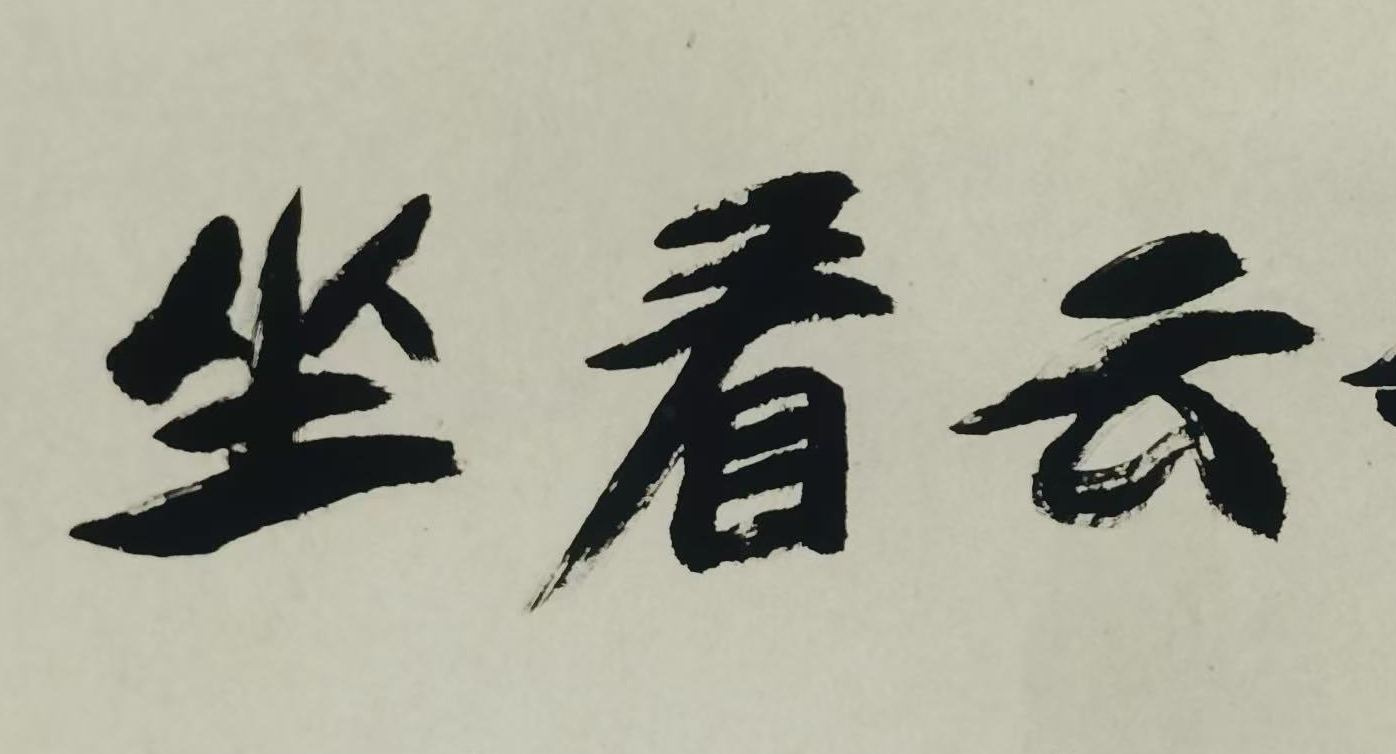 坐看云